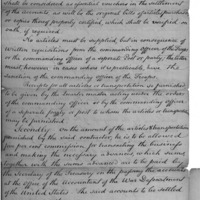 shall be considered as sufficient vouchers in the settlement
of the accounts as well as the
or copies thereof properly certified, which shall be
if required
No articles must be supplied, but in consequence of
written requisitions from the commanding Officer of the Troops
or the commanding Officer of a separate Post or party, the latter
must however in cases where practicable have the
sanction of the commanding Officer of the Troops.
Receipts for all articles or transportation so furnished
to be given by the Quarter master acting under the orders
of the commanding Officer or by the commanding Officer
of a separate party or post to whom the articles or transportation
may be furnished
Secondly. On the amount of the articles & transportation
furnished by the said contractor, he is to be allowed
per cent commission for transacting the business
and making the necessary advances which sums
together with the sums advanced are to be paid by
the Secretary of the Treasury on his passing the accounts
at the Office of the Accountant of the War Department
of the United States. The said accounts to be settled